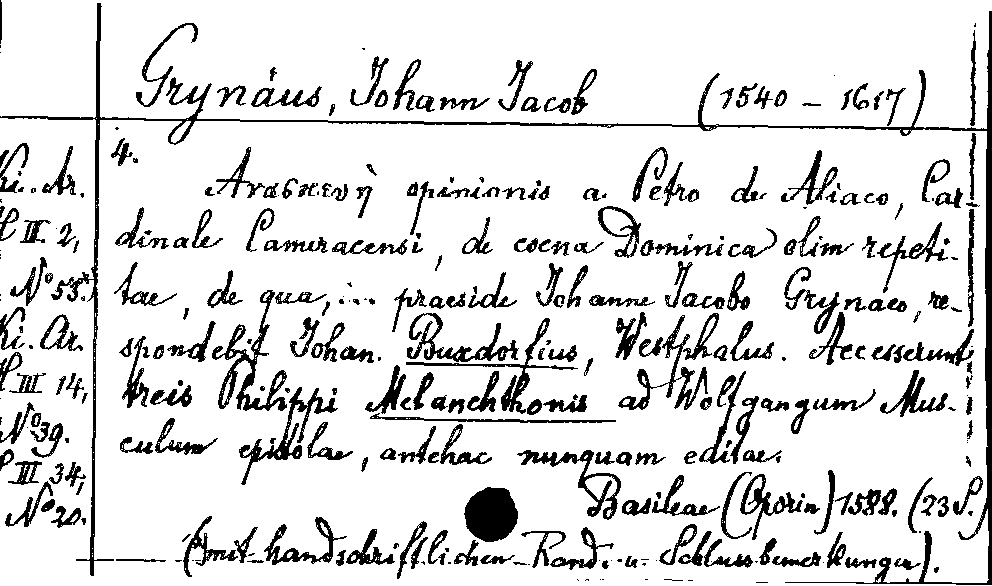 Grynäus, Johann Jacob (1540 - 1617)
4.
Ki. Ar. Ἀνασκευὴ opinionis a Petro de Aliaco, Car-
H III 2, dinale Cameracensi, de coena Dominica olim repeti-
No 55. tae, de qua, ... praeside Johanne Jacobo Grynaeo, re-
Ki. Ar. spondebit Johan. Buxdorfius, Westphalus. Accesserunt
H III 14, treis Philippi Melanchthonis ad Wolfgangum Mus-
No 39. culum epistolae, antehac nunquam editae.
III 34, Basileae (Oporin) 1588. (23 S.)
No 20. (mit handschriftlichen Rand- u. Schlussbemerkungen).